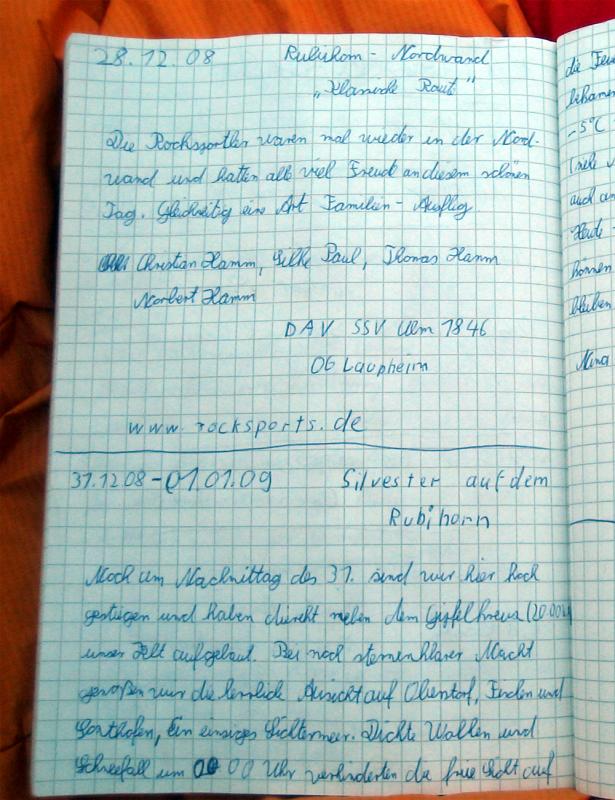 28.12.08 Rubihorn - Nordwand
„Klassische Rout“
Die Rocksportler waren mal wieder in der Nord-
wand und hatten alle viel Freud an diesem schönen
Tag. Gleichzeitig eine Art Familien - Ausflug
Christian Hamm, Silke Paul, Thomas Hamm
Norbert Hamm
DAV SSV Ulm 1846
OG Laupheim
www.rocksports.de
31.12.08-01.01.09 Silvester auf dem
Rubihorn
Noch am Nachmittag des 31. sind wir hier hoch
gestiegen und haben direkt neben dem Gipfelkreuz (20.00
unser Zelt aufgebaut. Bei noch sternenklarer Nacht
genoßen wir die herrliche Aussicht auf Oberstdorf, Fischen und
Sonthofen, Ein einziges Lichtermeer. Dichte Wolken und
Schneefall um 00 00 Uhr verhinderten die freie Sicht auf
die
-5°C
auch
Heute
können
bleiben
Nina